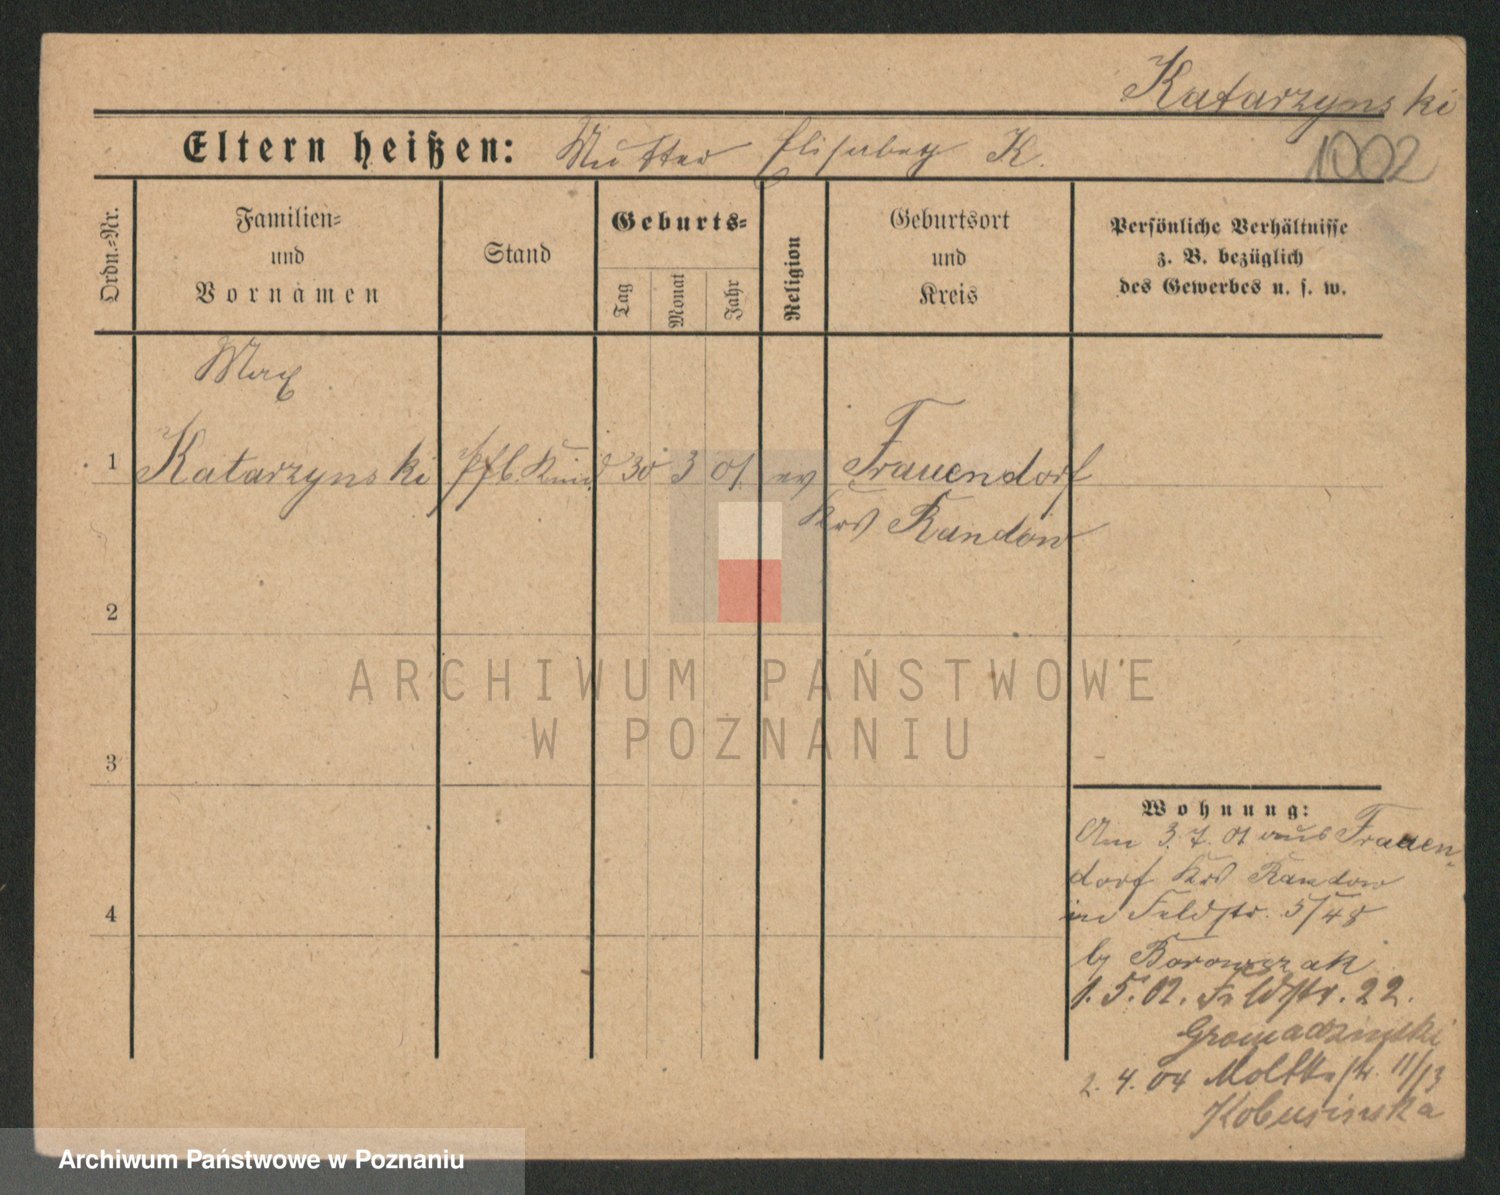 Katarzynski
Eltern heißen: Mutter Elisabeth K.
1002
Ordn.=Nr.
Familien=
und
Vornamen
Stand
Geburts=
Tag
Monat
Jahr
Religion
Geburtsort
und
Kreis
Persönliche Verhältnisse
z. B. bezüglich
des Gewerbes u. s. w.
Max
1 Katarzynski Pfl. Kind 30 3 01. ev Frauendorf
Krs Randow
2
3
4
Wohnung:
Am 3. 7. 01 aus Frauen-
dorf Krs Randow
in Feldstr. 5/48
by Borowczak
1. 5. 02. Feldstr. 22.
Gromadzinski
2. 4. 04 Moltkestr. 11/13
Kobusinska
ARCHIWUM PAŃSTWOWE
W POZNANIU
Archiwum Państwowe w Poznaniu